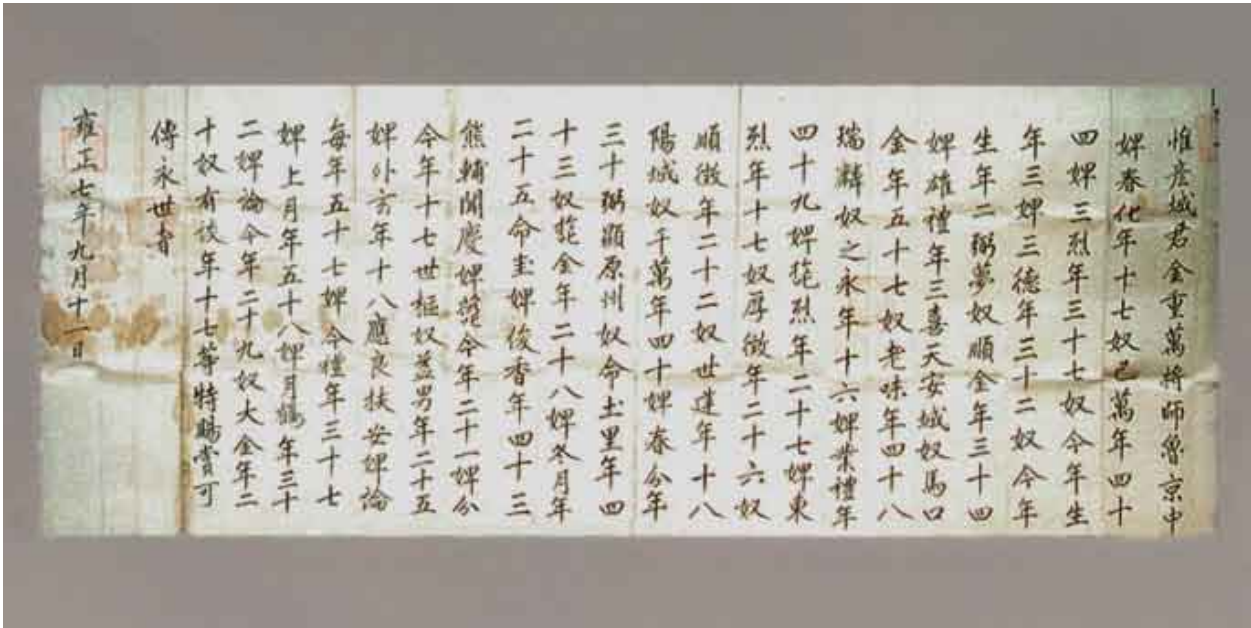 惟彦城君金重萬將師魯京中
婢春化年十七奴己萬年四十
四婢三烈年三十七奴今年生
年三婢三德年三十二奴今年
生年二弼夢奴順金年三十四
婢雄禮年三喜天安城奴馬口
金年五十七奴老味年四十八
瑞麟奴之永年十六婢業禮年
四十九婢龍烈年二十七婢東
烈年十七奴厚徵年二十六奴
順徵年二十二奴世建年十八
陽城奴千萬年四十婢春分年
三十弼顯原州奴命土里年四
十三奴龍金年二十八婢冬月年
二十五命圭婢俊香年四十三
熊輔聞慶婢龍今年二十一婢分
今年十七世樞奴益男年二十五
婢外玄年十八應良扶安婢論
每年五十七婢今禮年三十七
婢上月年五十八婢月鶴年三十
二婢論今年二十九奴大金年二
十奴有談年十七等特賜賞可
傳永世者
雍正七年九月十一日